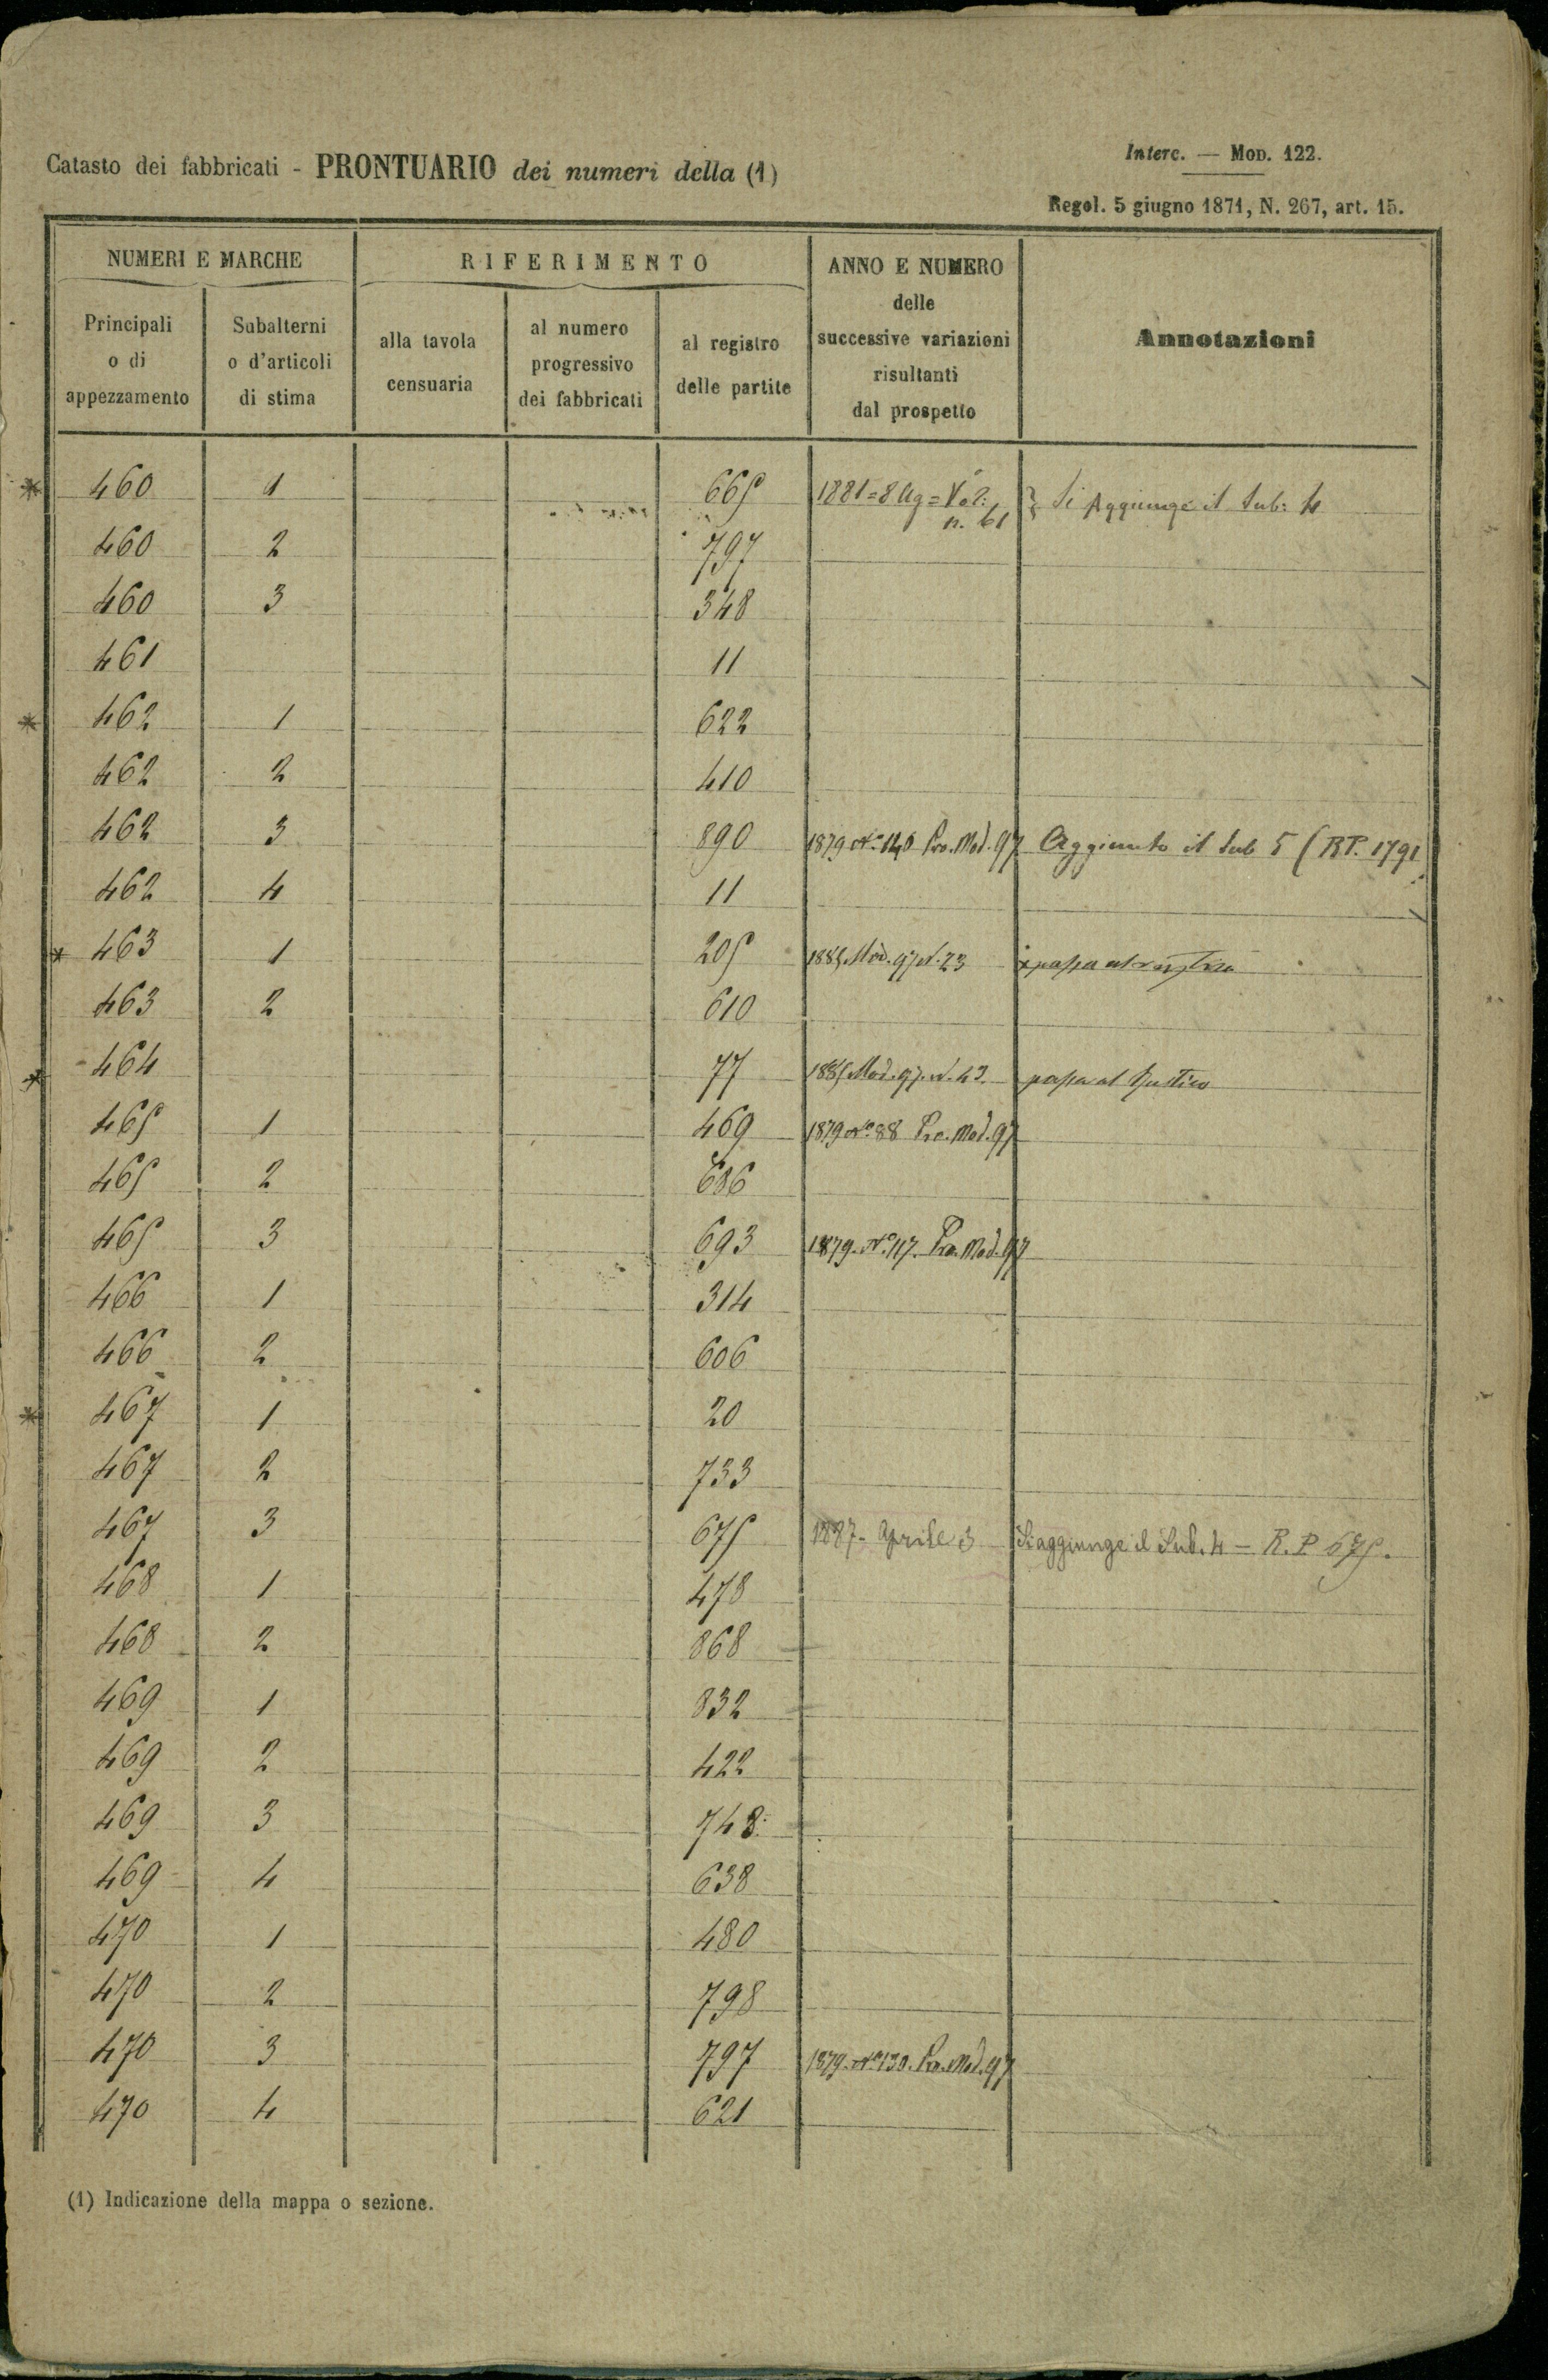 Catasto dei fabbricati - PRONTUARIO dei numeri della (1)
Interc. — Mod. 122.
Regol. 5 giugno 1871, N. 267, art. 15.
NUMERI E MARCHE
RIFERIMENTO
ANNO E NUMERO
delle
successive variazioni
risultanti
dal prospetto
Annotazioni
Principali
o di
appezzamento
Subalterni
o d'articoli
di stima
alla tavola
censuaria
al numero
progressivo
dei fabbricati
al registro
delle partite
* 460 1 665 1881=8 Ag= Vol: n. 61 Si Aggiunge il Sub: 4
460 2 797
460 3 348
461 11
* 462 1 622
462 2 410
462 3 890 1879 No 140 Pro. Mod. 97 Aggiunto il Sub 5 (RP. 1791
462 4 11
* 463 1 205 1885 Mod. 97 N. 23 passa al rustico
463 2 610
* 464 77 1885 Mod. 97. N. 43. passa al Rustico
465 1 469 1879 No 88 Pro. Mod. 97
465 2 686
465 3 693 1879. No 117. Pro. Mod. 97
466 1 314
466 2 606
* 467 1 20
467 2 733
467 3 675 1887- Aprile 3 Si aggiunge il Sub. 4 — R. P 675.
468 1 478
468 2 868
469 1 832
469 2 422
469 3 748
469 4 638
470 1 480
470 2 798
470 3 797 1879. No 130. Pro. Mod. 97
470 4 621
(1) Indicazione della mappa o sezione.